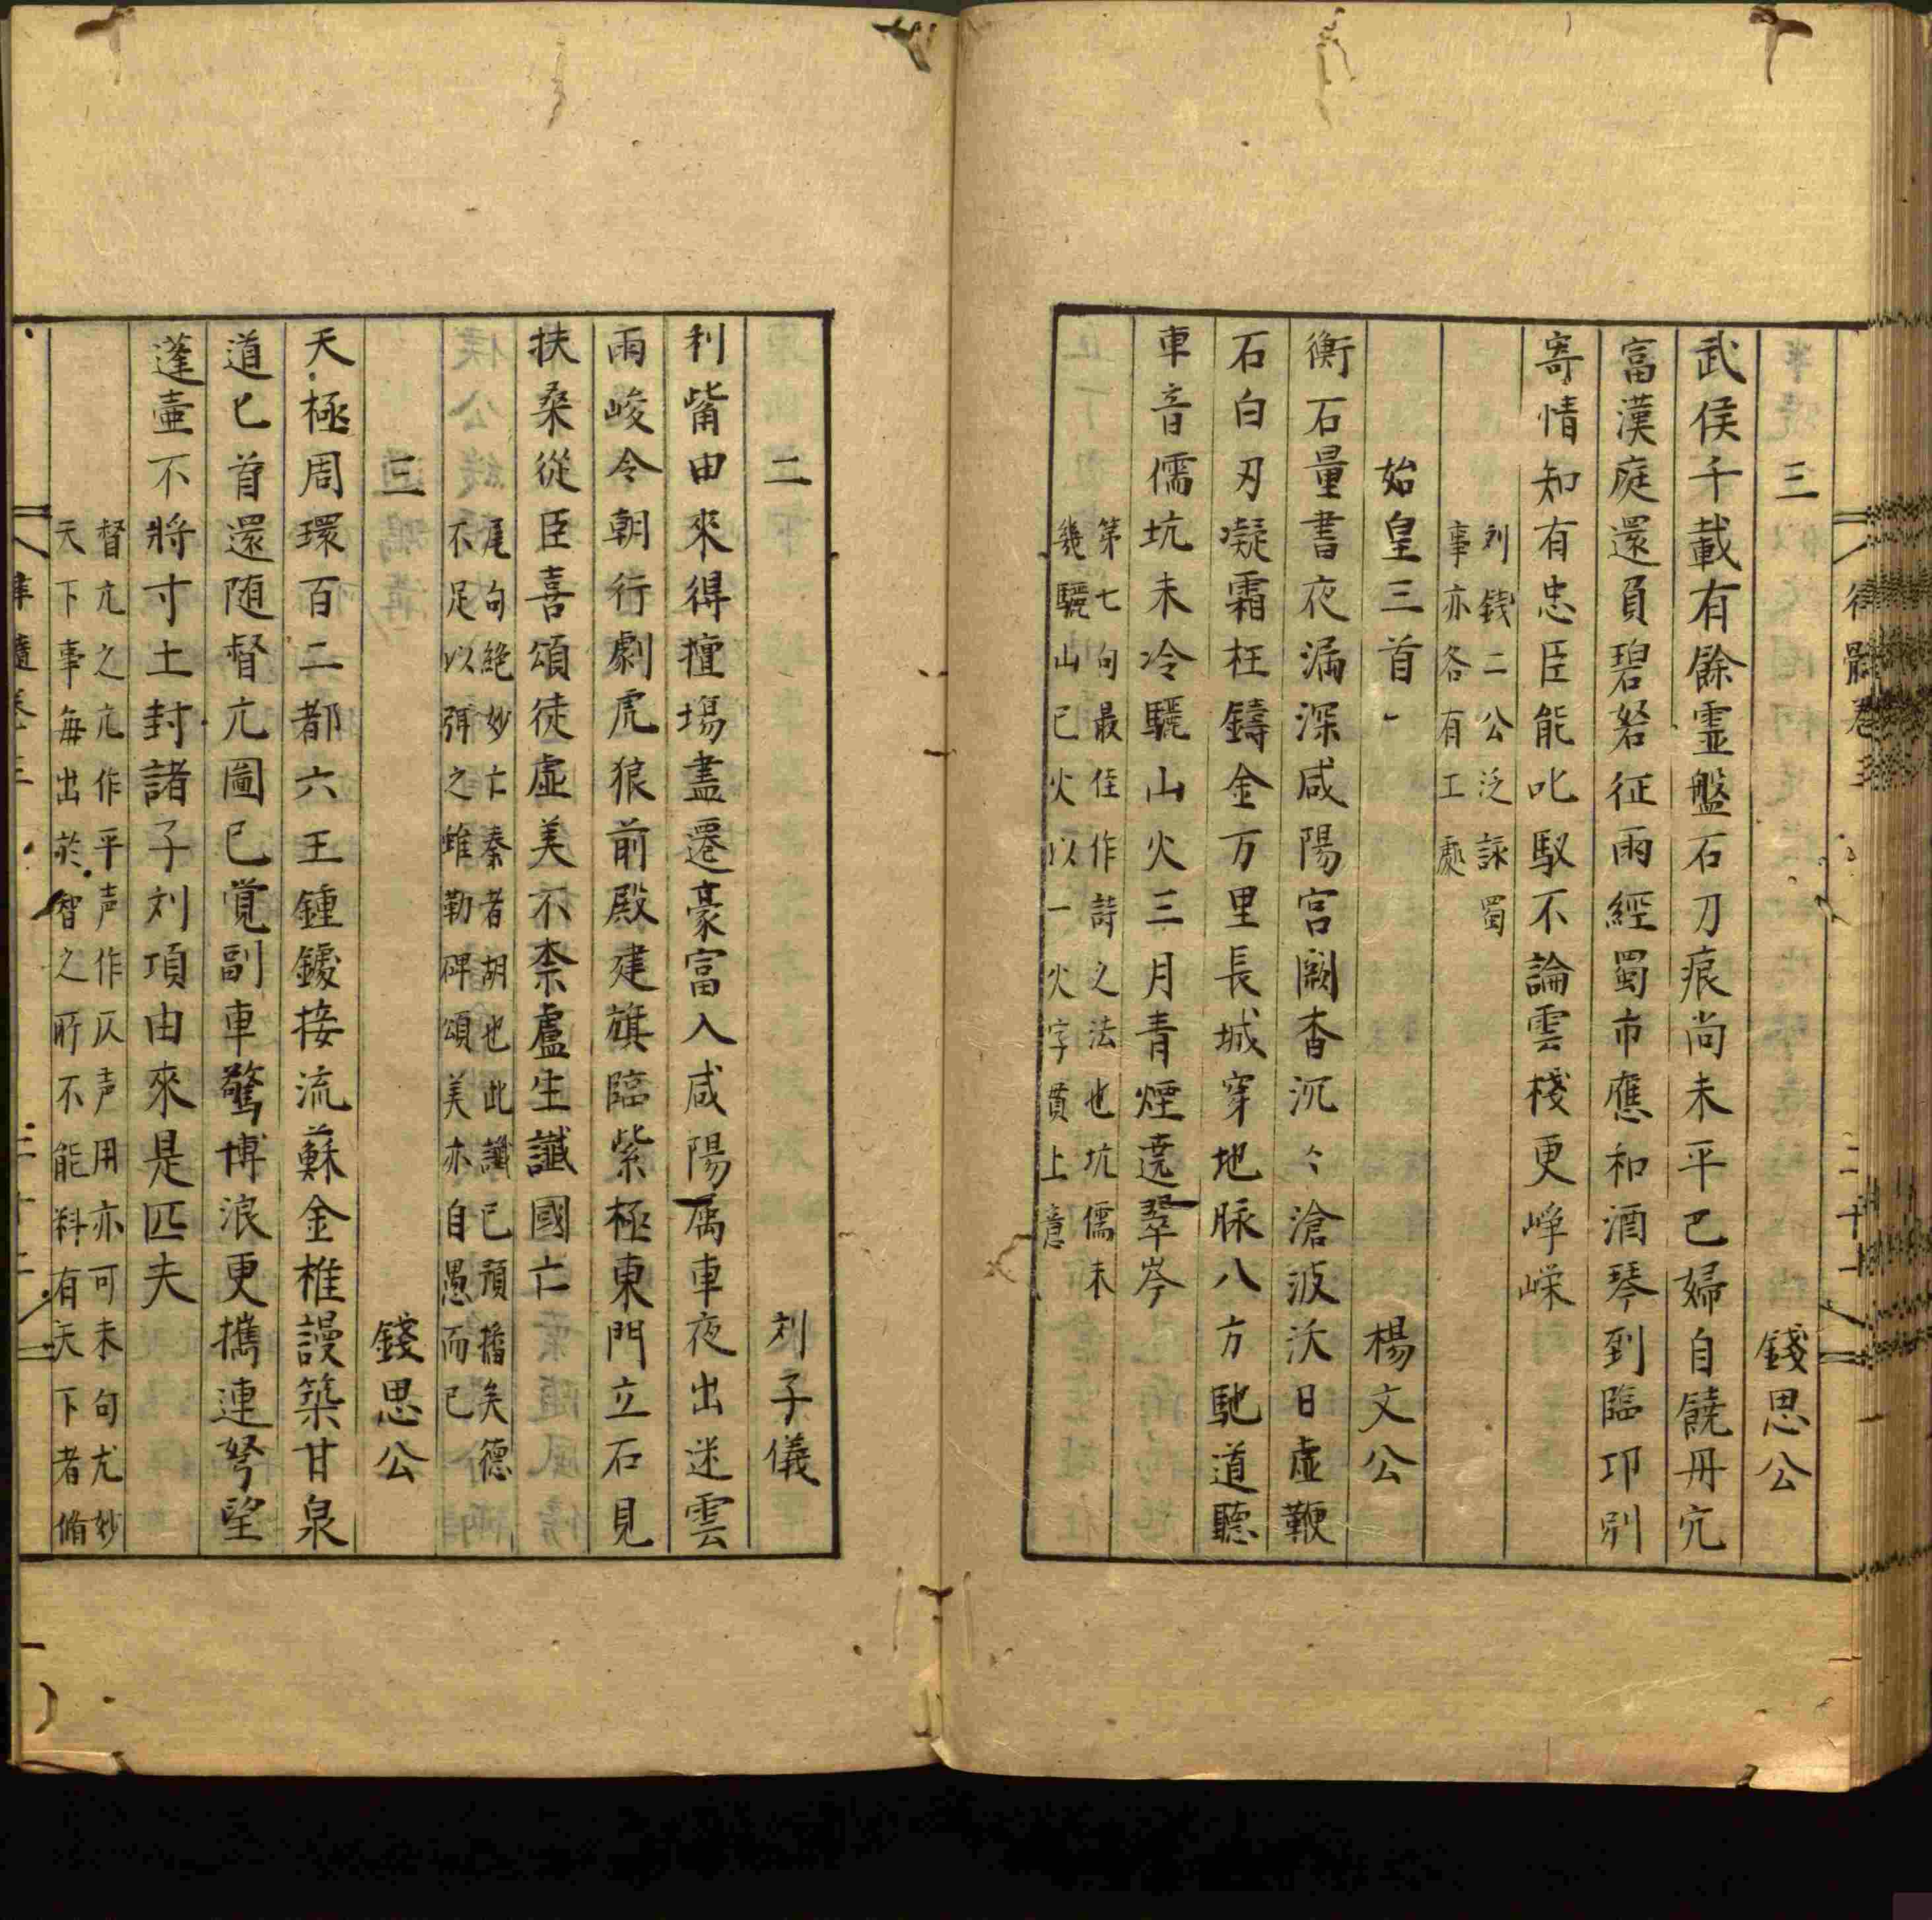 三 錢思公
武侯千載有餘霊盤石刀痕尚未平已婦自饒丹穴
富漢庭還負碧砮征雨經蜀市應和酒琴到臨邛別
寄情知有忠臣能叱馭不論雲棧更崢嶸
刘錢二公泛詠蜀
事亦各有工處
始皇三首 楊文公
衡石量書夜漏深咸陽宮闕杳沉々滄波沃日虛鞭
石白刃凝霜枉鑄金万里長城穿地脉八方馳道聽
車音儒坑未冷驪山火三月青煙遶翠岑
第七句最佳作詩之法也坑儒未
幾驪山已火以一火字貫上意
二 刘子儀
利觜由來得擅塲盡遷豪富入咸陽属車夜出迷雲
雨峻令朝行劇虎狼前殿建旗臨紫極東門立石見
扶桑從臣喜頌徒虛美不柰盧生讖國亡
尾句絶妙亡秦者胡也此讖已預播矣德
不足以弭之雖勒碑頌美亦自愚而已
三 錢思公
天極周環百二都六王鍾鐻接流蘇金椎謾築甘泉
道已首還随督亢圖已覺副車驚博浪更攜連弩望
蓬壷不將寸土封諸子刘項由來是匹夫
督亢之亢作平声作仄声用亦可未句尤妙
天下事每出於智之所不能料有天下者脩